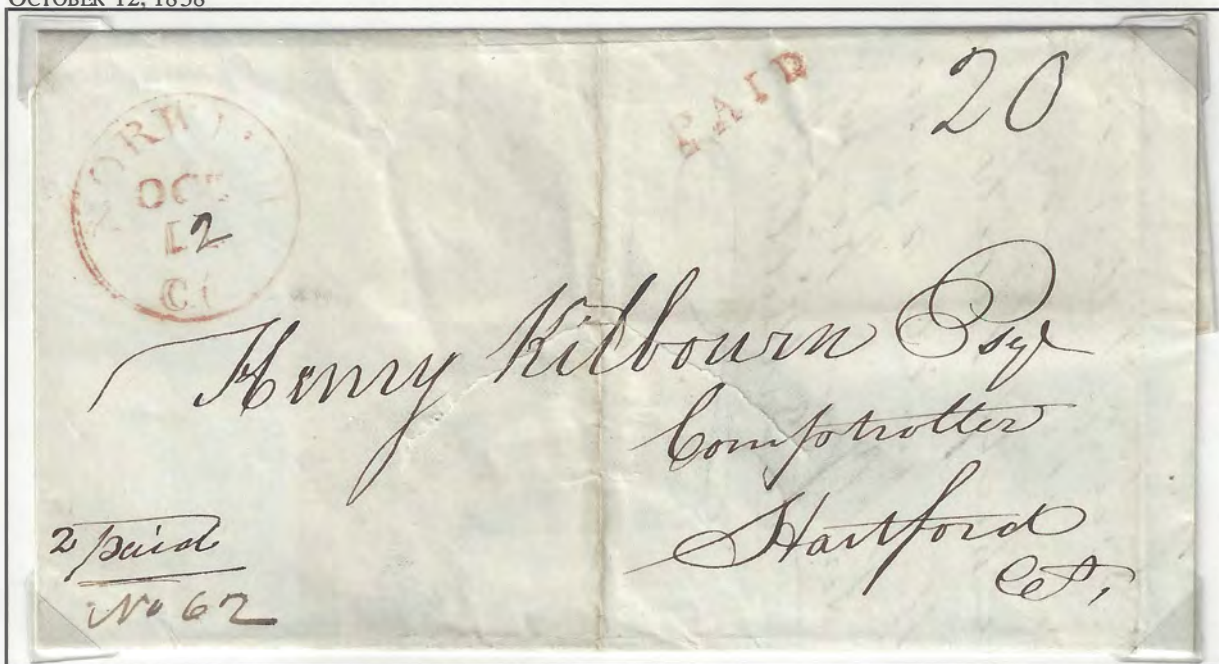 OCTOBER 12, 1838
PAID
20
OCT
12
CT
Henry Kilbourn Esqr
Comptroller
Hartford
Ct,
2 paid
No 62